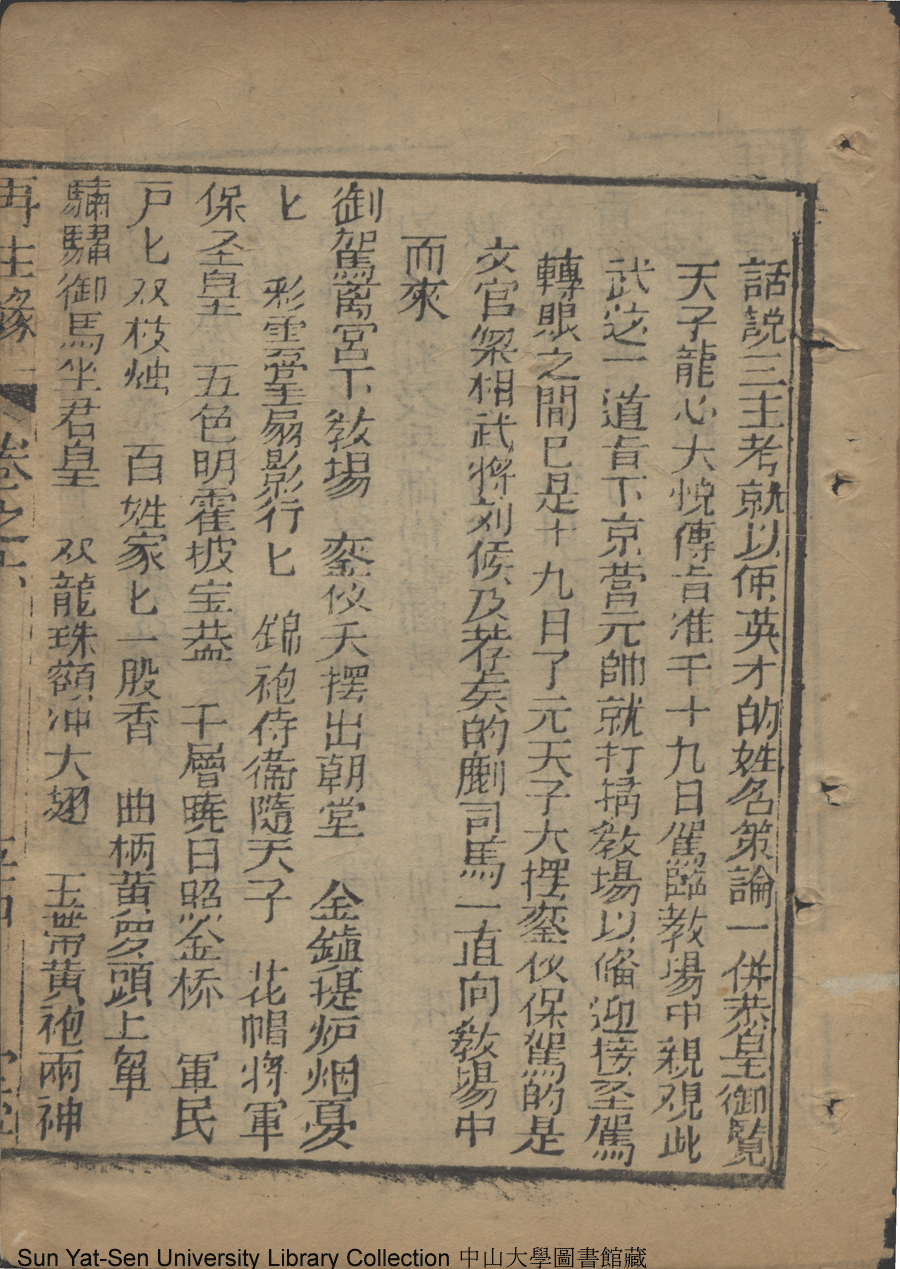 話說三王考就以便英才的姓名策論一併恭皇御覽
天子龍心大悅傳旨准千十九日駕臨教場中親观此
武这一道旨下京營元帥就打掃教場以偹迎接圣駕
轉眼之間已是十九日了元天子大擺銮仪保駕的是
文官梁相武將刘候及孝矣的鄘司馬一直向教場中
而來
御駕离宮下教場 銮仪天擺出朝堂 金鑪提炉烟憂
匕 彩雲掌扇影行匕 錦袍侍衞隨天子 花帽將軍
保圣皇 五色明霍披宝葢 千層曉日照金桥 軍民
戸匕双枝烛 百姓家匕一股香 曲柄黄罗頭上單
驌驦御馬坐君皇 双龍珠額冲大翅 玉带黄袍兩神
再生緣 卷之六
Sun Yat-Sen University Library Collection 中山大學圖書館藏